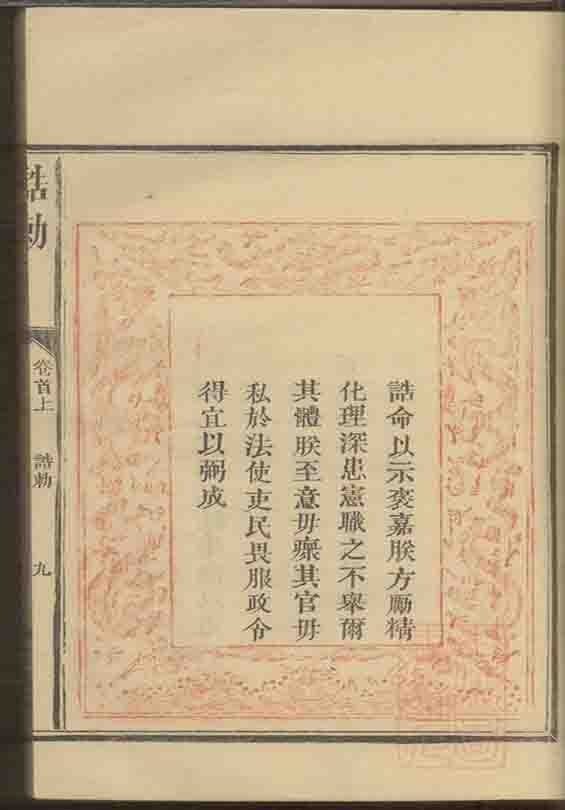 誥命以示褒嘉朕方勵精
化理深患憲職之不舉爾
其體朕至意毋瘝其官毋
私於法使吏民畏服政令
得宜以弼成
誥勅
卷首上
誥勅
九